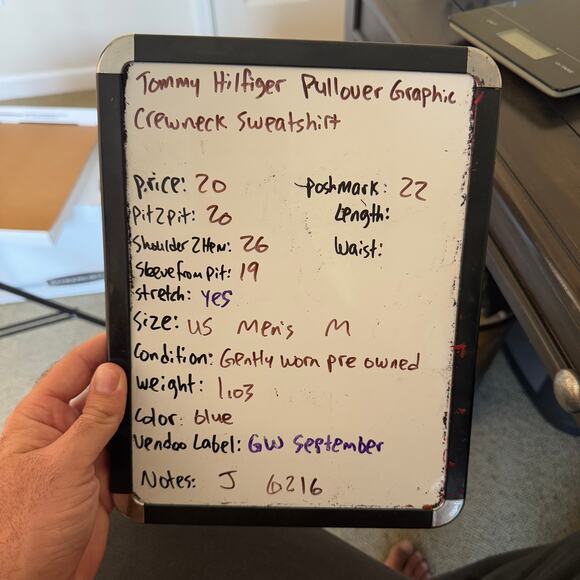 Tommy Hilfiger Pullover Graphic
Crewneck Sweatshirt
price: 20 poshmark: 22
Pit2pit: 20 Length:
Shoulder2Hem: 26 Waist:
Sleeve from pit: 19
stretch: yes
Size: US Men's M
Condition: Gently worn pre owned
weight: 1.03
Color: blue
Vendoo Label: GW September
Notes: J 6216